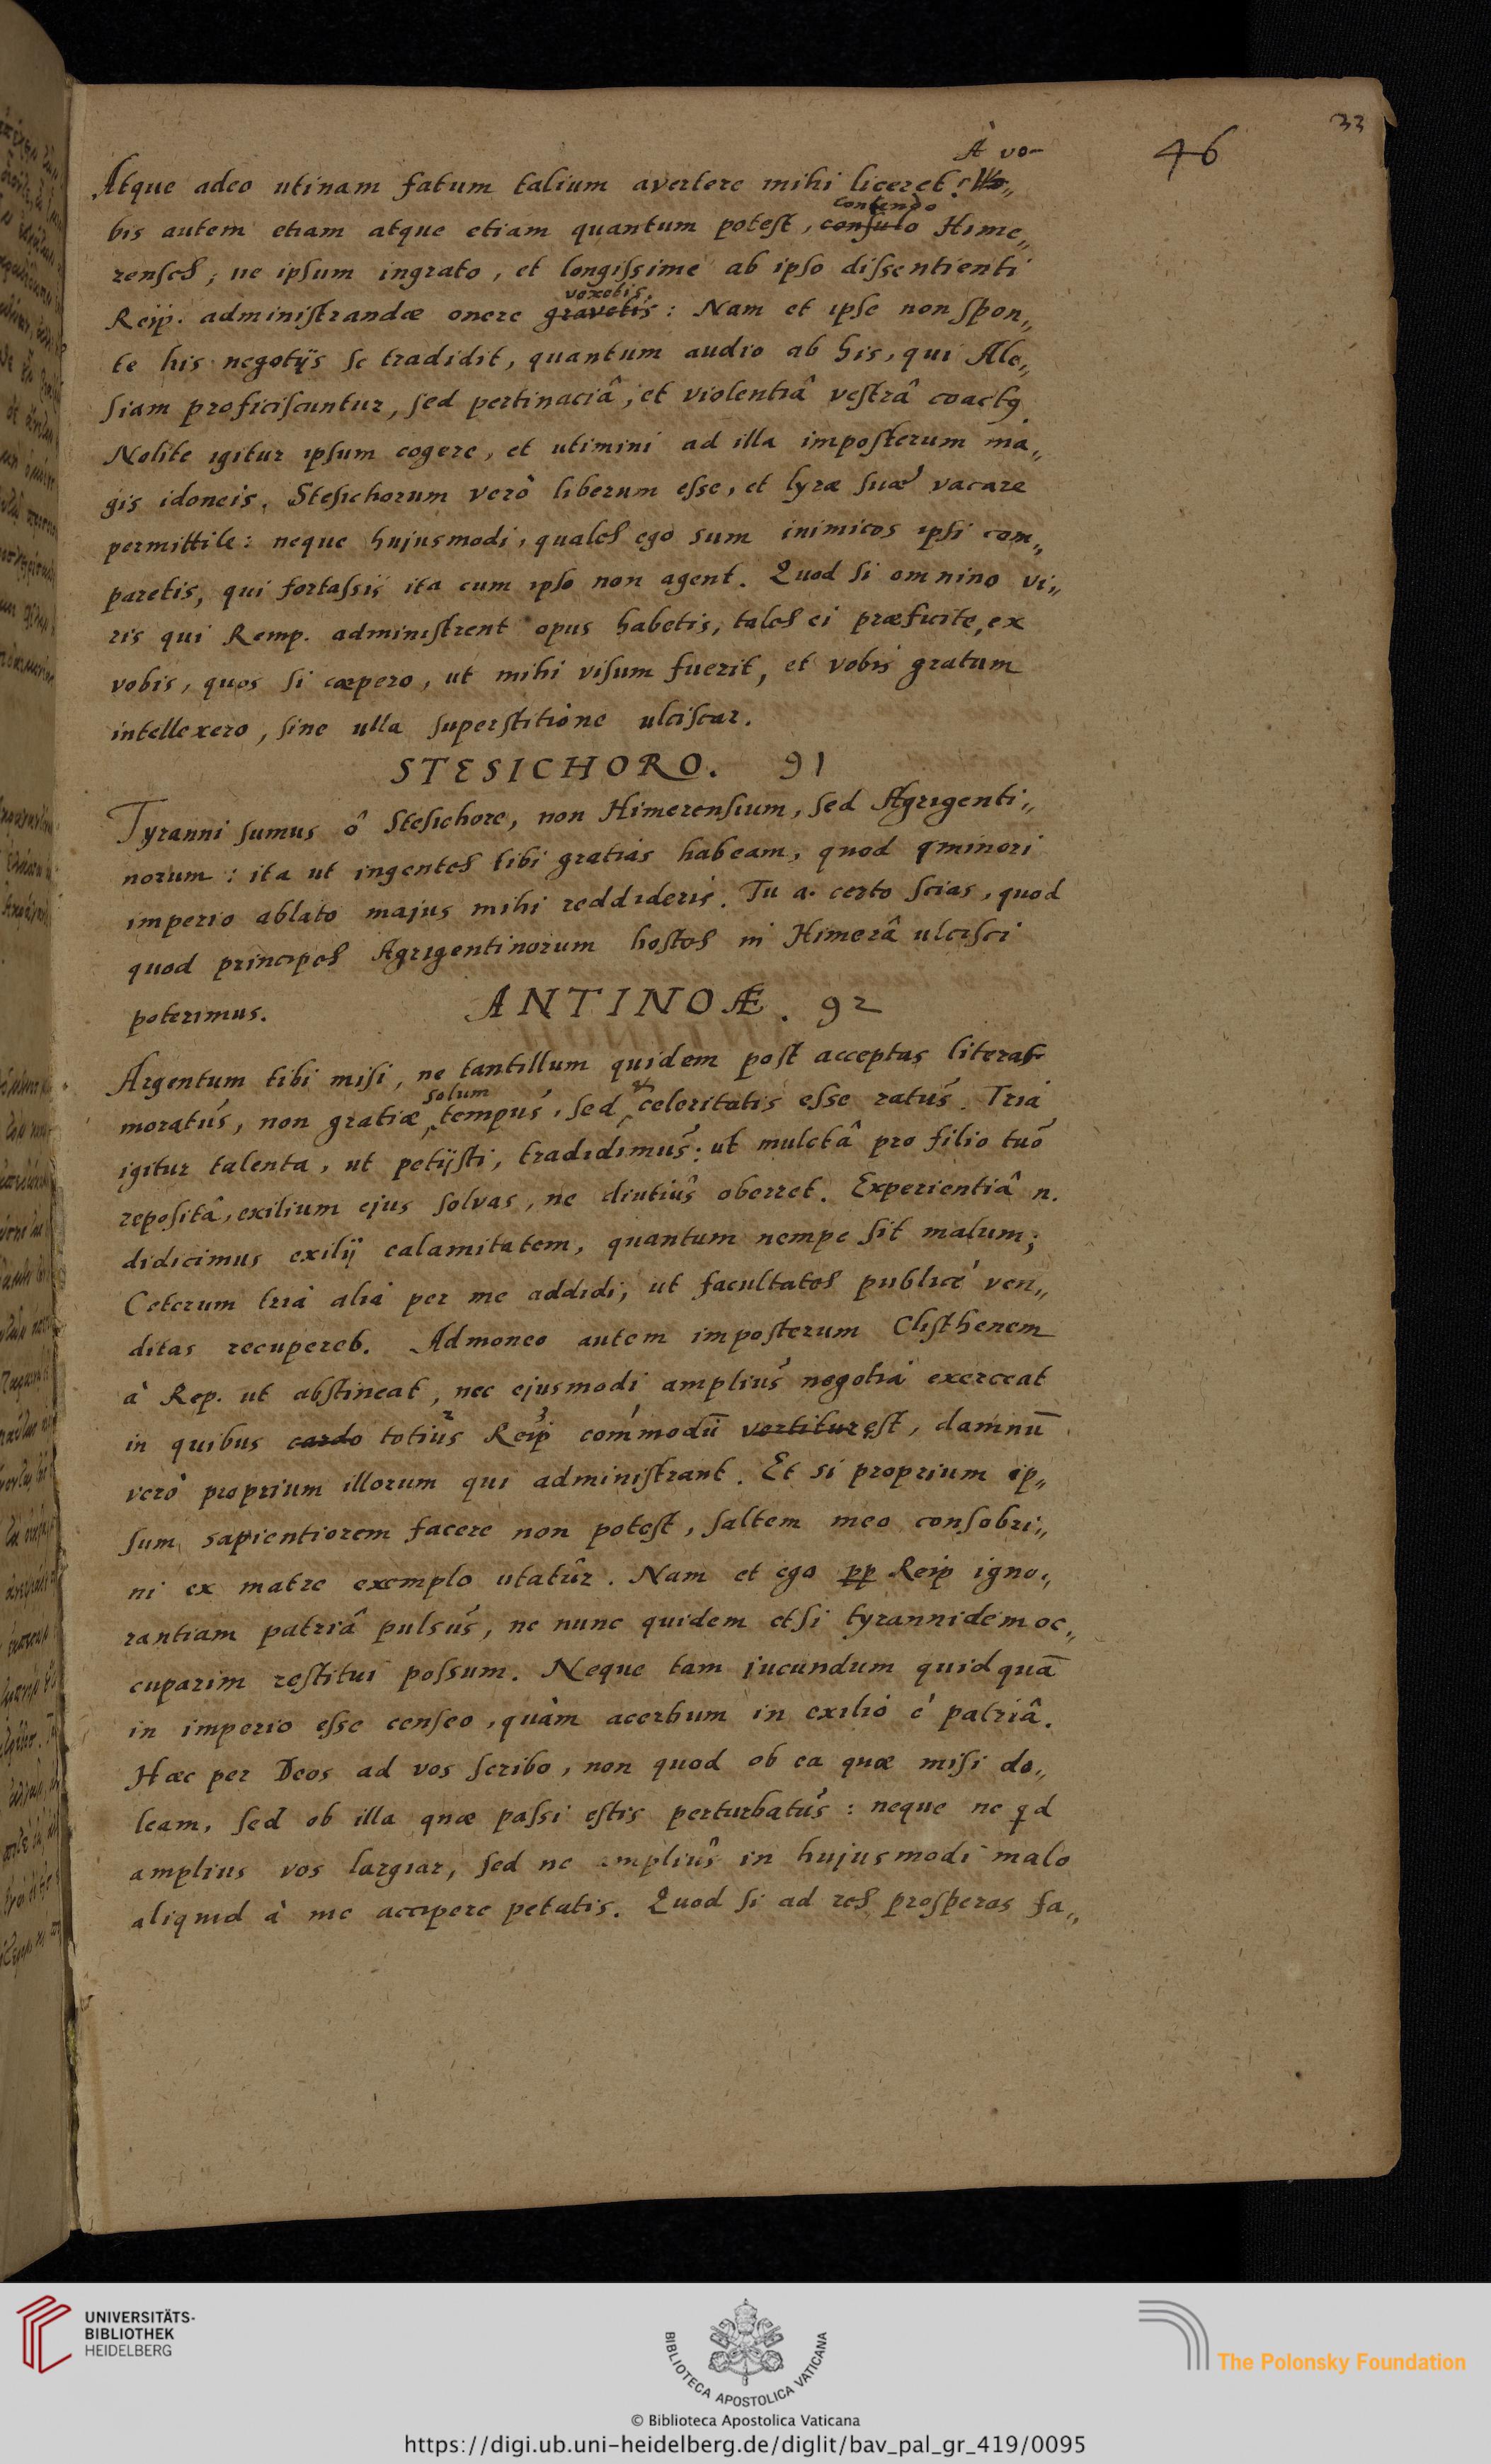 46
33
À vo-
Atque adeo utinam fatum talium avertere mihi liceret! Vo„
contendo
bis autem etiam atque etiam quantum potest, consulo Hime„
renses, ne ipsum ingrato, et longissime ab ipso dissentienti
vexetis,
Reip. administrandæ onere gravetis: Nam et ipse non spon„
te his negotijs se tradidit, quantum audio ab his, qui Ale„
siam proficiscuntur, sed pertinaciâ, et violentiâ vestrâ coactus.
Nolite igitur ipsum cogere, et utimini ad illa imposterum ma„
gis idoneis. Stesichorum verò liberum esse, et lyræ suæ vacare
permittite: neque hujusmodi, quales ego sum inimicos ipsi com„
paretis, qui fortassis ita cum ipso non agent. Quod si omnino vi„
ris qui Remp. administrent opus habetis, tales ei præficite, ex
vobis, quos si cœpero, ut mihi visum fuerit, et vobis gratum
intellexero, sine ulla superstitione ulciscar.
STESICHORO. 91
Tyranni sumus ô Stesichore, non Himerensium, sed Agrigenti„
norum: ita ut ingentes tibi gratias habeam, quod qminori
imperio ablato majus mihi reddideris. Tu a. certo scias, quod
quod principes Agrigentinorum hostes in Himerâ ulcisci
poterimus. ANTINOÆ. 92
Argentum tibi misi, ne tantillum quidem post acceptas literas
solum
moratus, non gratiæ tempus, sed celeritatis esse ratus. Tria
igitur talenta, ut petijsti, tradidimus: ut mulctâ pro filio tuo
repositâ, exilium ejus solvas, ne diutius oberret. Experientiâ n.
didicimus exilij calamitatem, quantum nempe sit malum;
Ceterum tria alia per me addidi, ut facultates publicè ven„
ditas recuperes. Admoneo autem imposterum Clisthenem
à Rep. ut abstineat, nec ejusmodi amplius negotia exerceat
2 3 1
in quibus cardo totius Reip commodū vertitur est, damnū
verò proprium illorum qui administrant. Et si proprium ip„
sum sapientiorem facere non potest, saltem meo consobri„
ni ex matre exemplo utatur. Nam et ego pp Reip igno„
rantiam patriâ pulsus, ne nunc quidem etsi tyrannidem oc„
cuparim restitui possum. Neque tam jucundum quidquā
in imperio esse censeo, quàm acerbum in exilio è patriâ.
Hæc per Deos ad vos scribo, non quod ob ea quæ misi do„
leam, sed ob illa quæ passi estis perturbatus: neque ne qd
amplius vos largiar, sed ne amplius in hujusmodi malo
aliquid à me accipere petatis. Quod si ad res prosperas fa„
UNIVERSITÄTS-
BIBLIOTHEK
HEIDELBERG
BIBLIOTECA APOSTOLICA VATICANA
The Polonsky Foundation
© Biblioteca Apostolica Vaticana
https://digi.ub.uni-heidelberg.de/diglit/bav_pal_gr_419/0095